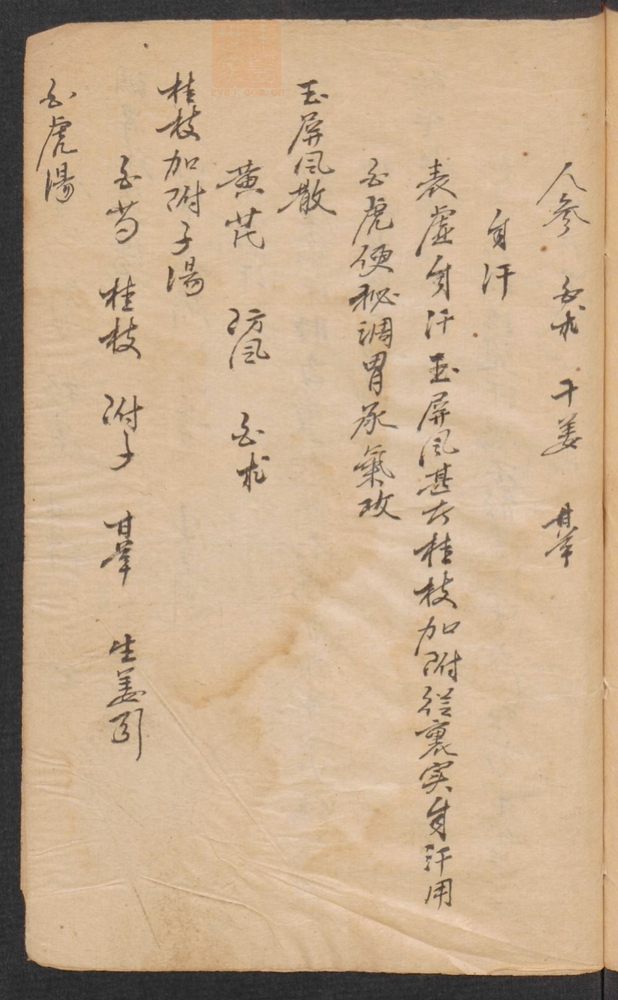 人參 白朮 干姜 甘草
自汗
表虛自汗玉屏風甚者桂枝加附從裏实自汗用
白虎便秘調胃承氣攻
玉屏風散
黄芪 防風 白朮
桂枝加附子湯
白芍 桂枝 附子 甘草 生姜引
白虎湯